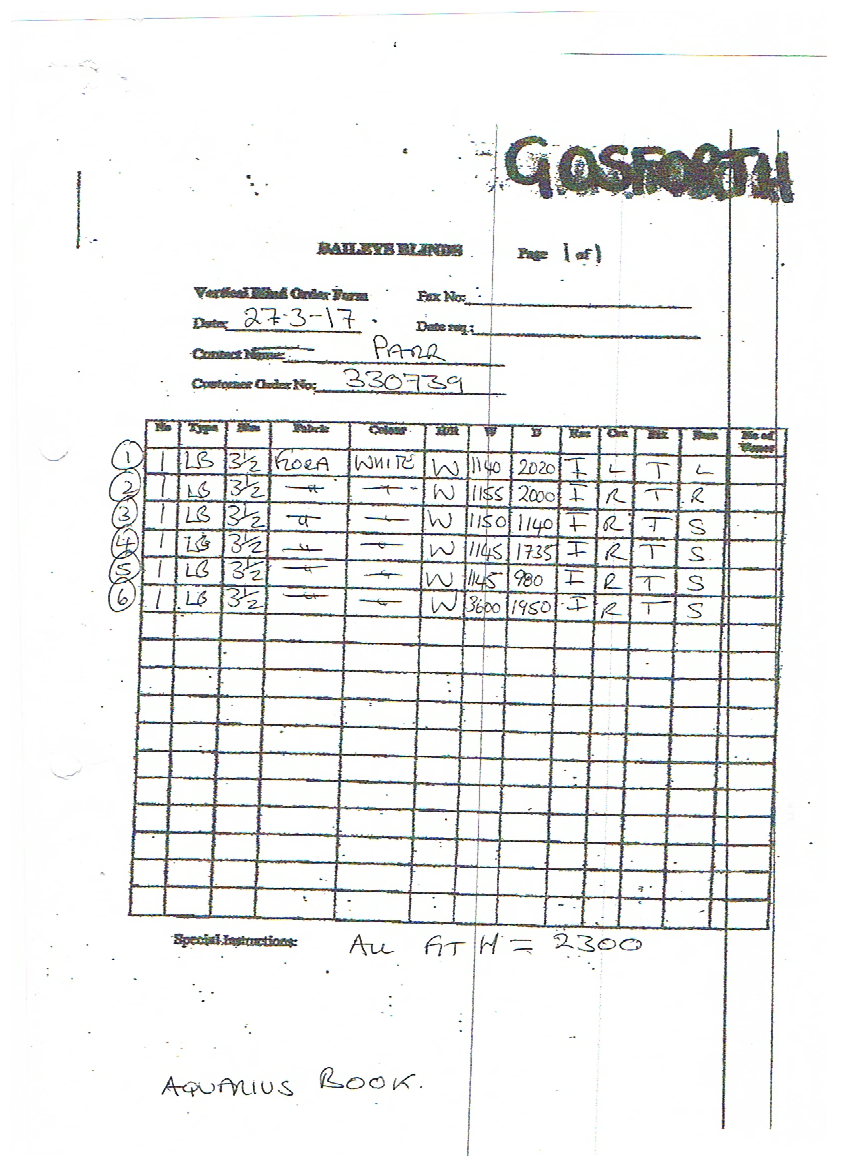 GOSFORTH
BAILEYS BLINDS Page 1 of 1
Vertical Blind Order Form Fax No:
Date: 27-3-17. Date req.:
Contact Name: PARR
Customer Order No: 330739
No Type Size Fabric Colour W D Fix No of Vanes
① 1 LB 3½ WHITE W 1140 2020 I L T L
② 1 LB 3½ " " W 1155 2000 I R T R
③ 1 LB 3½ " " W 1150 1140 I R T S
④ 1 LB 3½ " " W 1145 1735 I R T S
⑤ 1 LB 3½ " " W 1145 980 I R T S
⑥ 1 LB 3½ " " W 3600 1950 I R T S
Special Instructions: ALL FIT H = 2300
AQUARIUS BOOK.